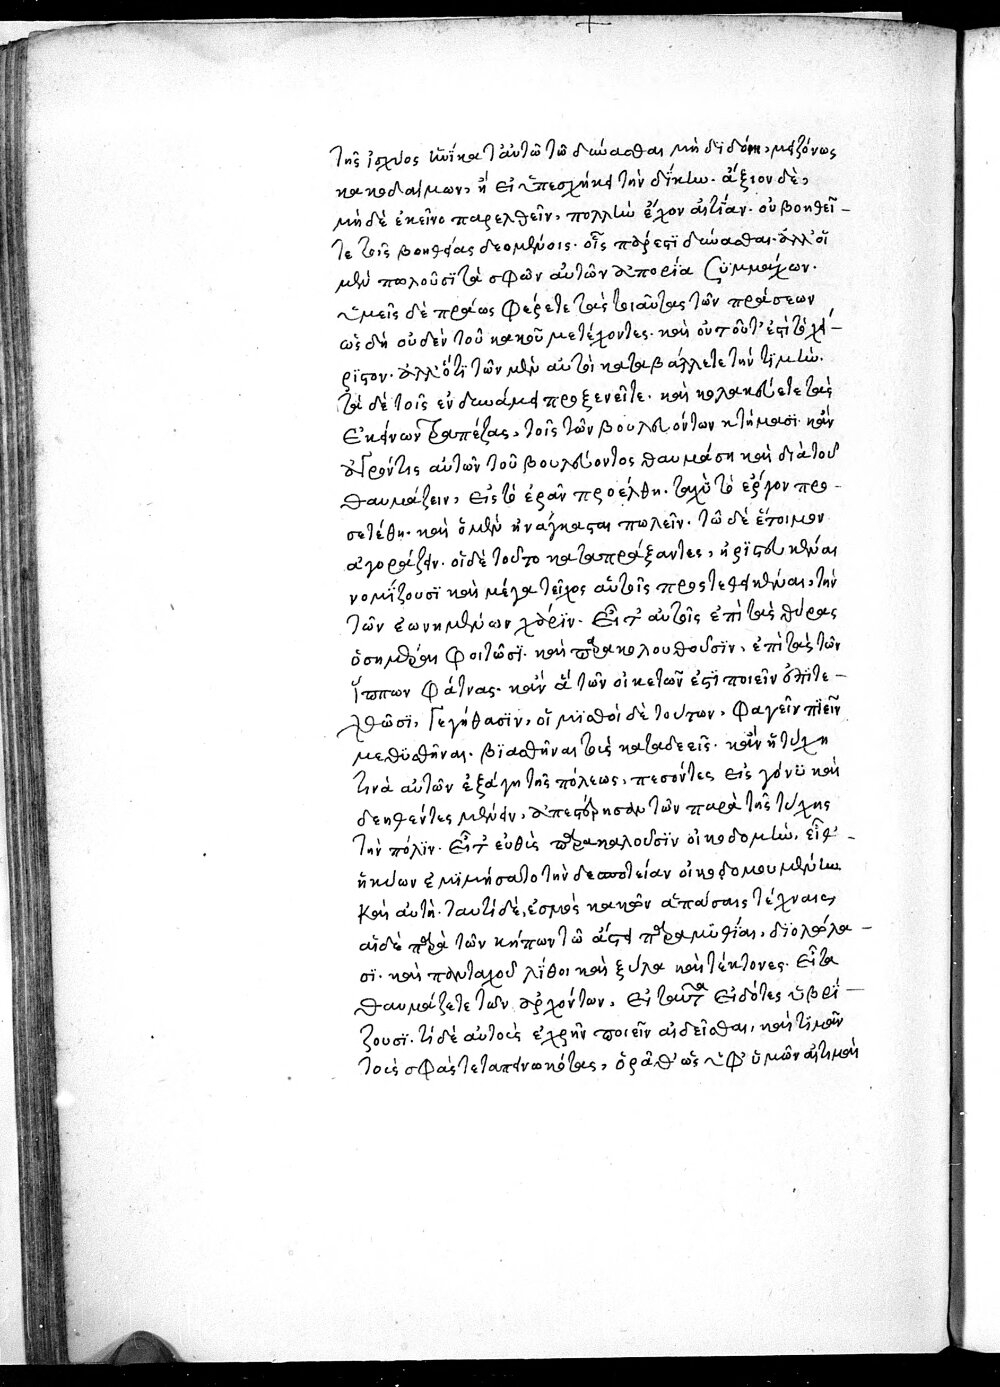 τῆς ἰσχύος ἡνίκα ταὐτῶ τῶ δύνασθαι μὴ διδόναι, μειζόνως
κακοδαίμων, ἢ εἰ ὑπεσχήκει τὴν δίκην. ἄξιον δὲ,
μὴ δὲ ἐκεῖνο παρελθεῖν, πολλὴν ἔχον αἰτίαν. οὐ βοηθεῖ-
τε τοῖς βοηθείας δεομένοις. οἷς πάρεστι δύνασθαι. ἀλλ' οἱ
μὲν πωλοῦσι τὰ σφῶν αὐτῶν ἀπορία συμμάχων.
ὑμεῖς δὲ πράως φέρετε τὰς τοιαύτας τῶν πράσεων
ὡς δὴ οὐδὲν τοῦ κακοῦ μετέχοντες. καὶ οὐ τοῦτ' ἐστὶ τὸ χεί-
ριστον. ἀλλ' ὅτι τῶν μὲν αὐτοὶ καταβάλλετε τὴν τιμήν.
τὰ δὲ τοῖς ἐν δυνάμει προξενεῖτε. καὶ κολακεύετε τὰς
ἐκείνων τραπέζας, τοῖς τῶν βουλευόντων κτήμασι. κἂν
ἀγρόν τις αὐτῶν τοῦ βουλεύοντος θαυμάση καὶ διὰ τοῦ
θαυμάζειν, εἰς τὸ ἐρᾶν προέλθη. ταχὺ τὸ ἔργον προ-
σετέθη. καὶ ὁ μὲν ἠνάγκασται πωλεῖν. τῶ δὲ ἕτοιμον
ἀγοράζειν. οἱ δὲ τοῦτο καταπράξαντες, ἠριστευκέναι
νομίζουσι καὶ μέγα τεῖχος αὑτοῖς προστεθεικέναι, τὴν
τῶν ἐωνημένων χάριν. εἶτ' αὐτοῖς ἐπὶ τὰς θύρας
ὁσημέραι φοιτῶσι. καὶ παρακολουθοῦσιν, ἐπὶ τὰς τῶν
ἵππων φάτνας. κἂν ἃ τῶν οἰκετῶν ἐστὶ ποιεῖν ἐπιτε-
λχθῶσι, γεγήθασιν, οἱ μισθοὶ δὲ τούτων, φαγεῖν πιεῖν
μεθυσθῆναι. βιασθῆναι τοὺς καταδεεῖς. κἂν ἡ τύχη
τινὰ αὐτῶν ἐξάγη τῆς πόλεως, πεσόντες εἰς γόνυ καὶ
δεηθέντες μένειν, ἀπεστέρησαν τῶν παρὰ τῆς τύχης
τὴν πόλιν. εἶτ' εὐθὺς παρακαλοῦσιν οἰκοδομεῖν. εἶθ'
ἥκιων ἐμιμήσατο τὴν δεσποτείαν οἰκοδομουμένην
καὶ αὐτή. ταυτὶ δὲ, ἐσμὸς κακῶν ἁπάσαις τέχναις
αἱ δὲ παρὰ τῶν κήπων τῶ ἄστει παραμυθίαι, διολώλα-
σι. καὶ πανταχοῦ λίθοι καὶ ξύλα καὶ τέκτονες. εἶτα
θαυμάζετε τῶν ἀρχόντων, εἰ ταῦτα εἰδότες ὑβρί-
ζουσι. τί δὲ αὐτοὺς ἐχρῆν ποιεῖν αἰδεῖσθαι, καὶ τιμᾶν
τοὺς σφᾶς τεταπεινωκότας, ὁρᾶθ' ὡς ὑφ' ὑμῶν αἱ τιμαὶ